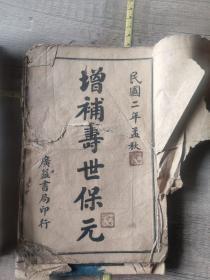 民國二年孟秋
增補壽世保元
廣益書局印行